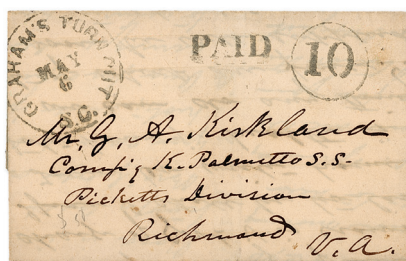 GRAHAM'S TURN OUT
MAY
6
S.C.
PAID
10
Mr, G, A, Kirkland
Comp'y K. Palmetto S. S.
Picketts Division
Richmond
V, A.